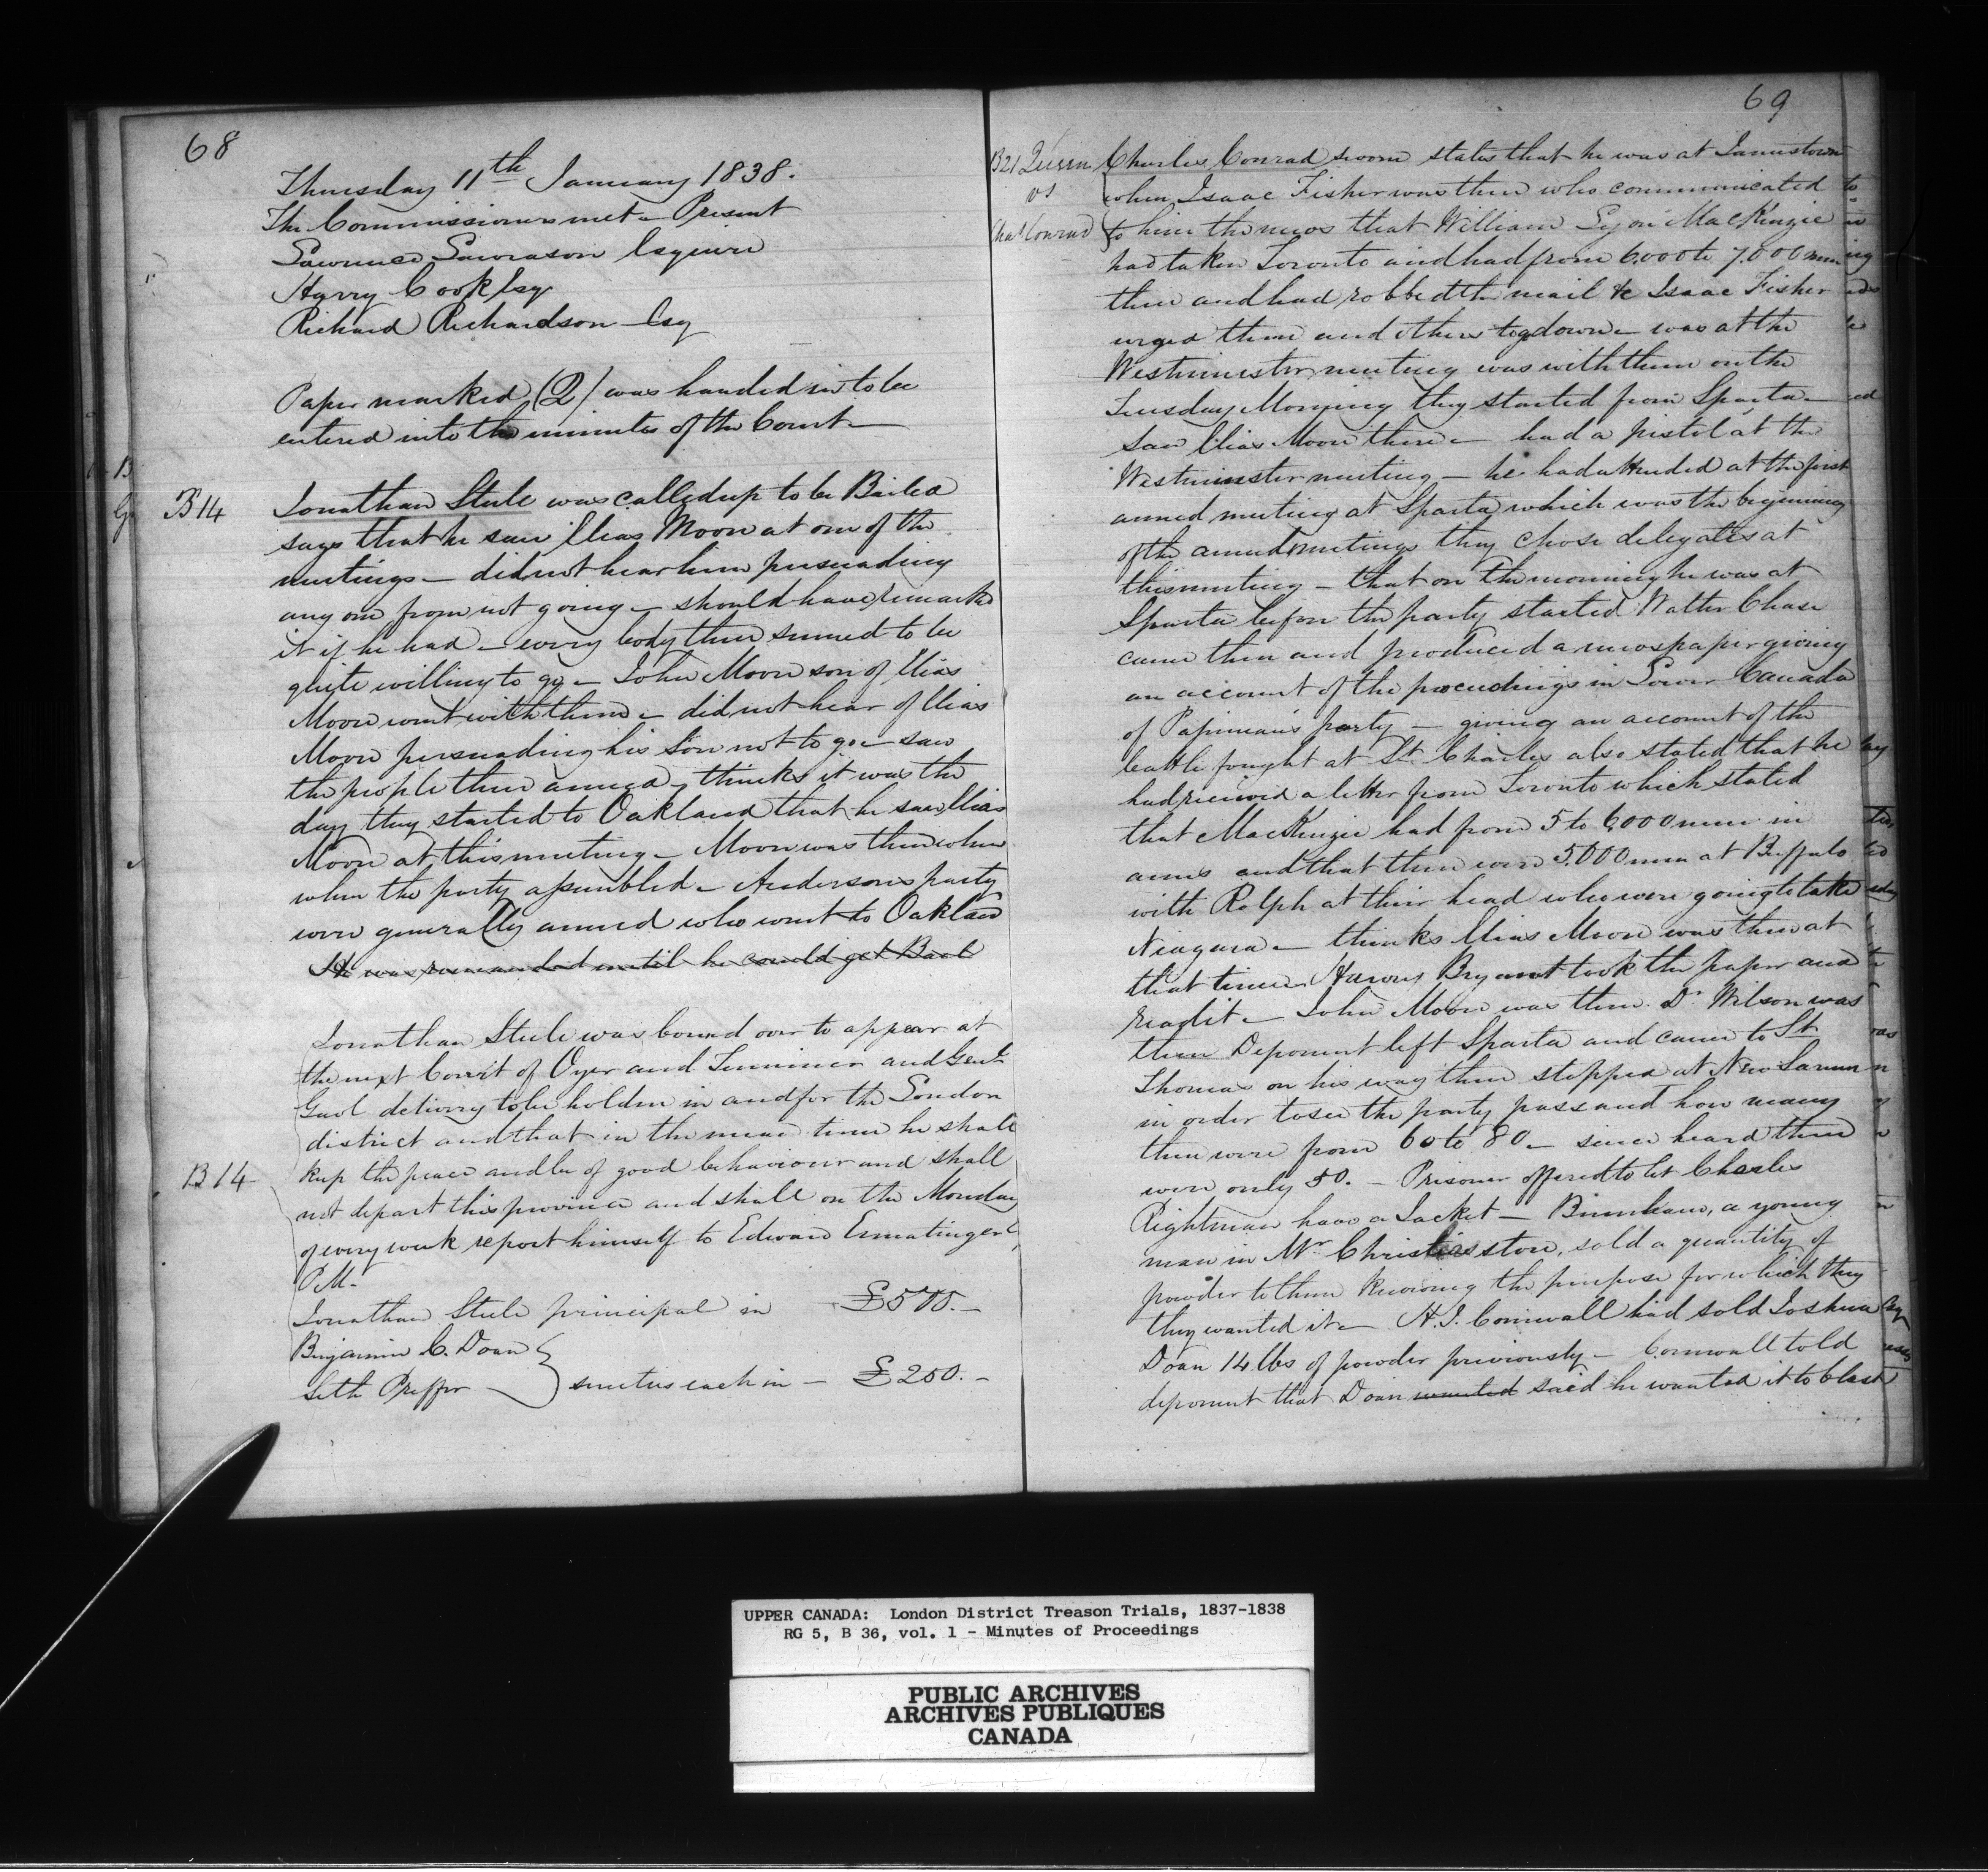 68
Thursday 11th January 1838.
The Commissioners met – Present
Lawrence Lawrason Esquire
Harry Cook Esq
Richard Richardson Esq
Paper marked (2) was handed in to be
entered into the minutes of the Court –
B14
Jonathan Steele was called up to be Bailed
says that he saw Elias Moon at one of the
meetings – did not hear him persuading
any one from not going – should have remarked
it if he had – every body there seemed to be
quite willing to go – John Moon son of Elias
Moon went with them – did not hear of Elias
Moon persuading his son not to go – saw
the people there armed, thinks it was the
day they started to Oakland that he saw Elias
Moon at this meeting – Moon was there when
when the party assembled – Andersons party
were generally armed who went to Oakland
He was remanded until he could get Bail
Jonathan Steele was bound over to appear at
the next Court of Oyer and Terminer and Genl
Gaol delivery to be holden in and for the London
district and that in the mean time he shall
B14
keep the peace and be of good behaviour and shall
not depart this province and shall on the Monday
of every week report himself to Edward Ermatinger
P.M.
Jonathan Steele principal in – £500. –
Benjamin C. Doan
Seth Preffer – } sureties each in – £250. –
69
B21 Queen
vs
Chas Conrad
Charles Conrad sworn states that he was at Jamestown
when Isaac Fisher was there who communicated
to him the news that William Lyon MacKenzie
had taken Toronto and had from 6000 to 7,000 men
there and had robbed the mail &c Isaac Fisher
urged them and others to go down – was at the
Westminster meeting was with them on the
Tuesday Morning they started from Sparta –
saw Elias Moon there – had a pistol at the
Westminster meeting – he had attended at the first
armed meeting at Sparta which was the beginning
of the armed meetings they chose delegates at
this meeting – that on the morning he was at
Sparta before the party started Walter Chase
came there and produced a newspaper giving
an account of the proceedings in Lower Canada
of Papineau's party – giving an account of the
battle fought at St. Charles also stated that he
had received a letter from Toronto which stated
that MacKenzie had from 5 to 6,000 men in
arms and that there were 5,000 men at Buffalo
with Rolph at their head who were going to take
Niagara – thinks Elias Moon was there at
that time Harvey Bryant took the paper and
read it – John Moon was there. Dr Wilson was
there Deponent left Sparta and came to St
Thomas on his way there stopped at New Sarum
in order to see the party pass and how many
there were from 60 to 80 – since heard there
were only 50. – Prisoner offered to let Charles
Rightman have a Jacket – a young
man in Mr Christies store, sold a quantity of
powder to them knowing the purpose for which they
they wanted it – H. J. Cornwall had sold Joshua
Doan 14 lbs of powder previously – Cornwall told
deponent that Doan wanted said he wanted it to blast
UPPER CANADA: London District Treason Trials, 1837-1838
RG 5, B 36, vol. 1 - Minutes of Proceedings
PUBLIC ARCHIVES
ARCHIVES PUBLIQUES
CANADA